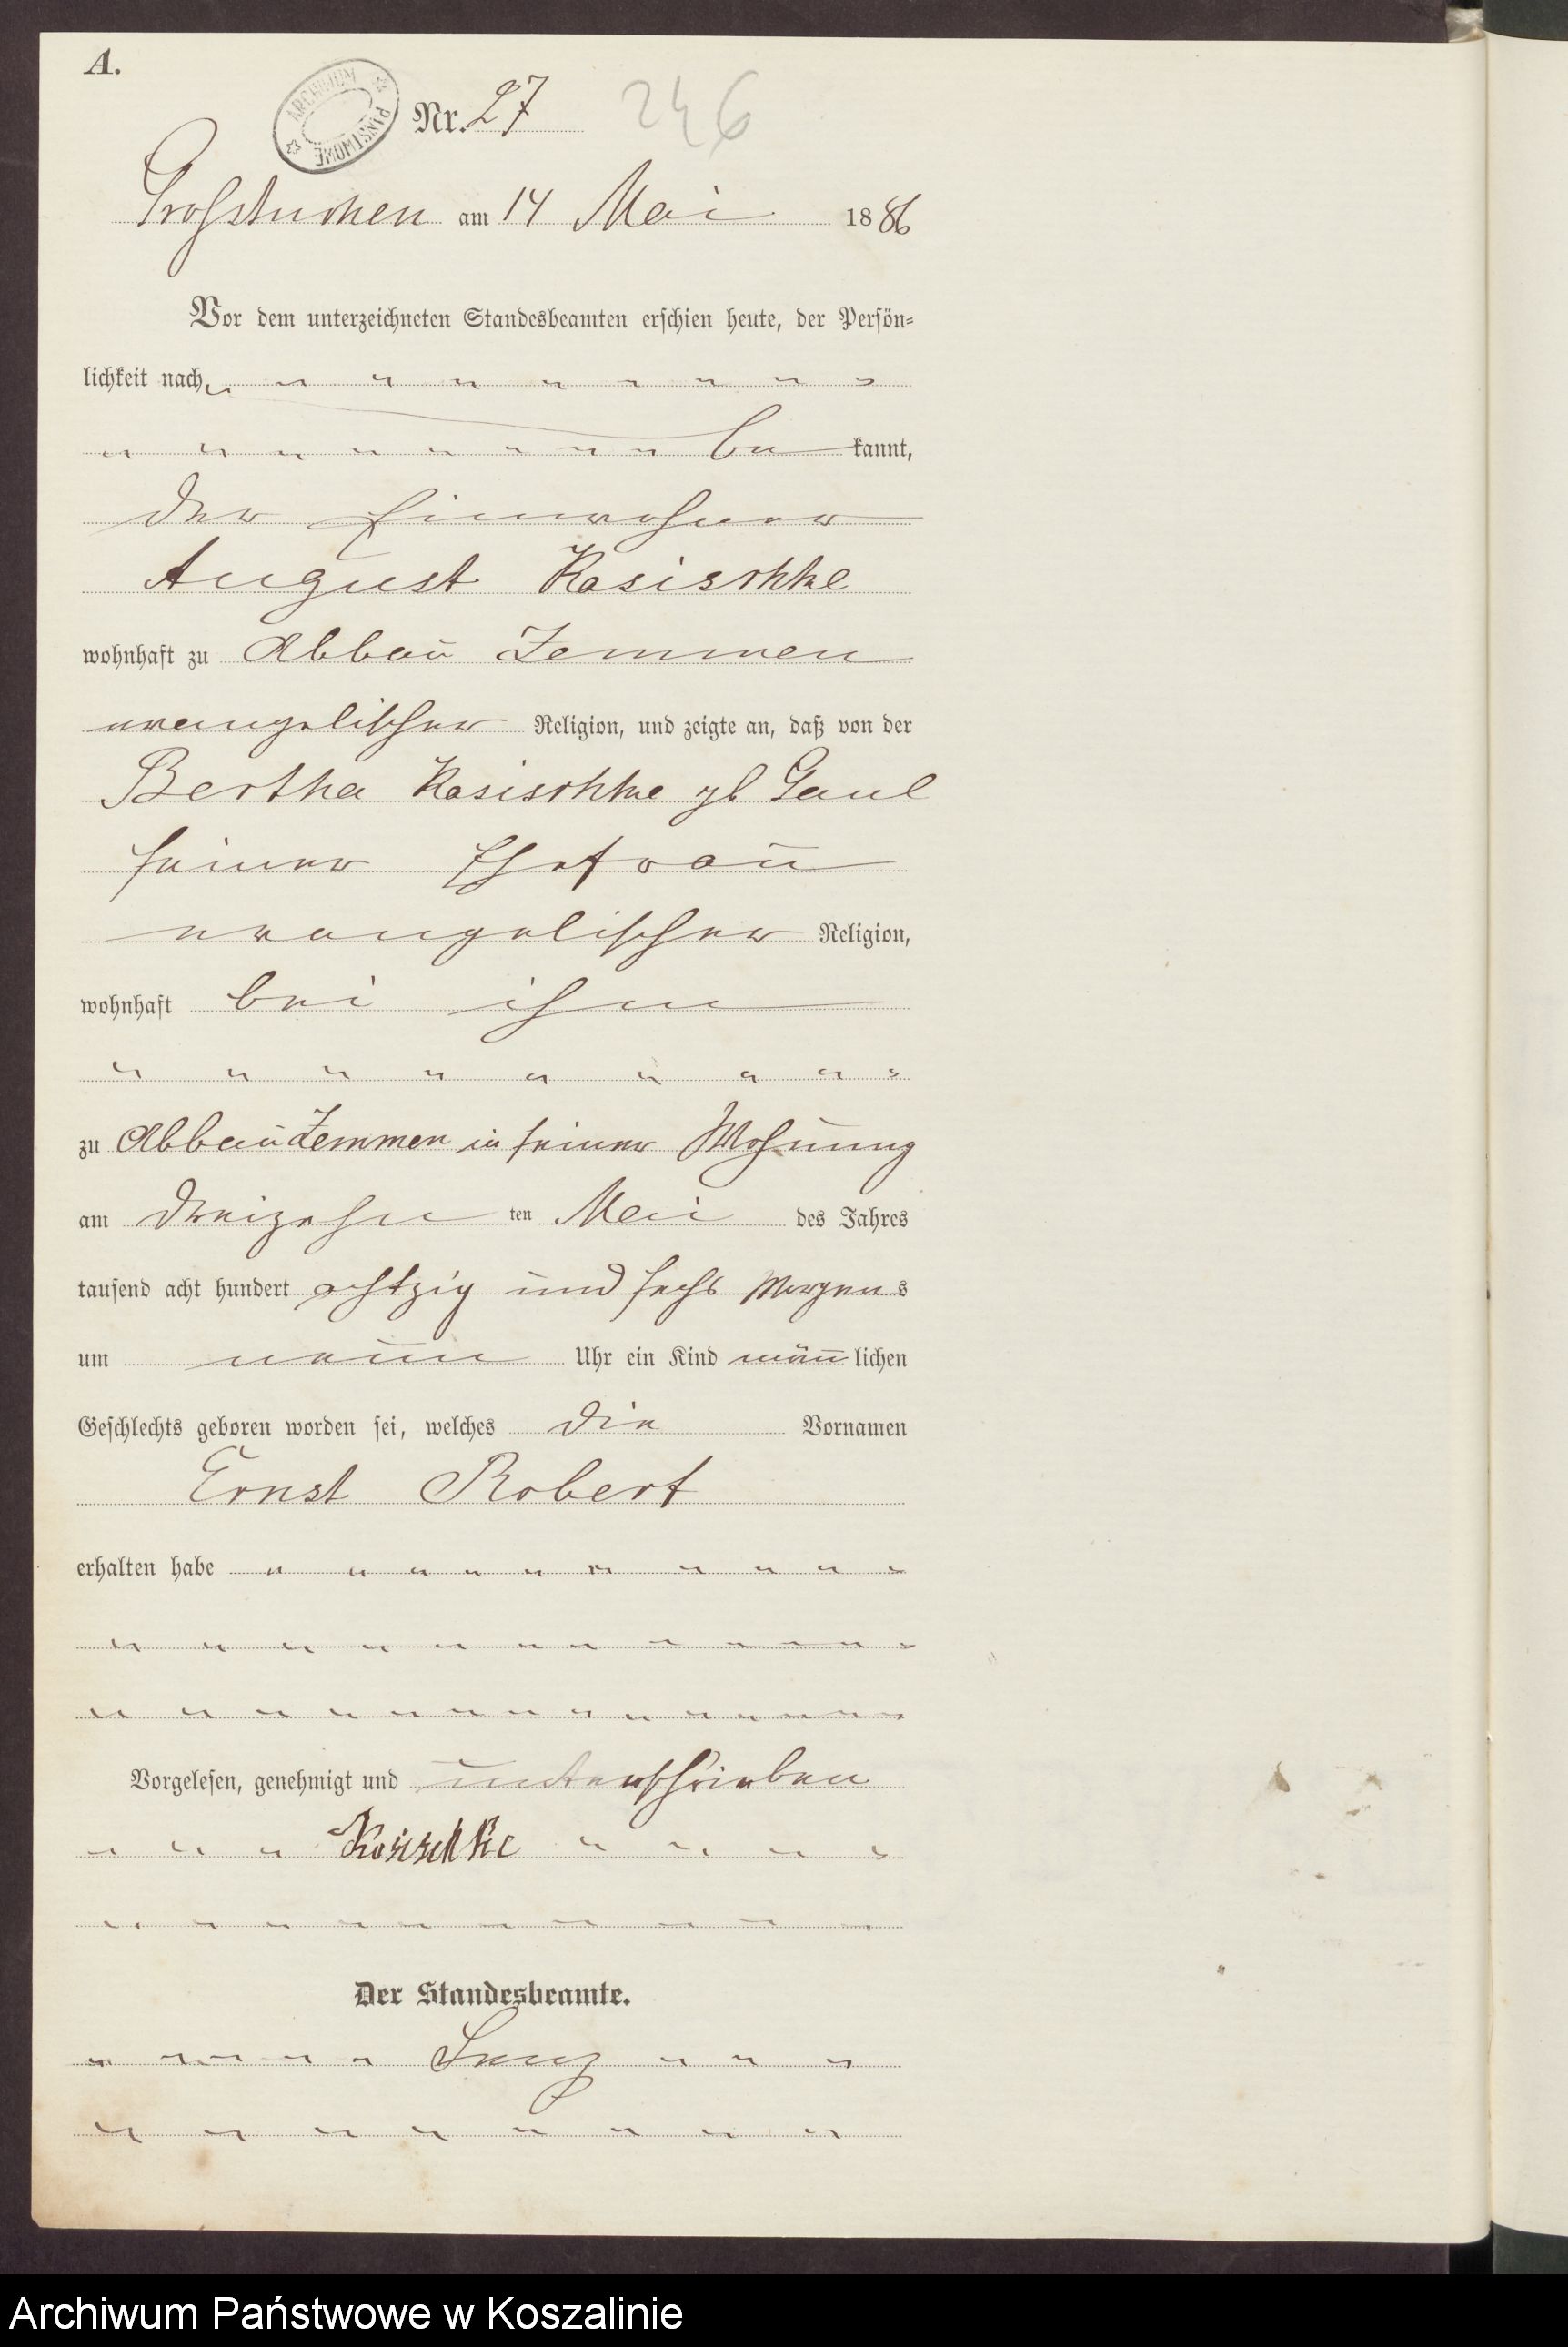 A.
ARCHIWUM PAŃSTWOWE
Nr. 27 246
Großtuchen am 14 Mai 1886
Vor dem unterzeichneten Standesbeamten erschien heute, der Persön=
lichkeit nach
be kannt,
der Einwohner
August Kasischke
wohnhaft zu Abbau Zemmen
evangelischer Religion, und zeigte an, daß von der
Bertha Kasischke gb Gaul
seiner Ehefrau
evangelischer Religion,
wohnhaft bei ihm
zu Abbau Zemmen in seiner Wohnung
am dreizehn ten Mai des Jahres
tausend acht hundert achtzig und sechs Morgens
um neun Uhr ein Kind männlichen
Geschlechts geboren worden sei, welches die Vornamen
Ernst Robert
erhalten habe
Vorgelesen, genehmigt und unterschrieben
Kasischke
Der Standesbeamte.
Archiwum Państwowe w Koszalinie